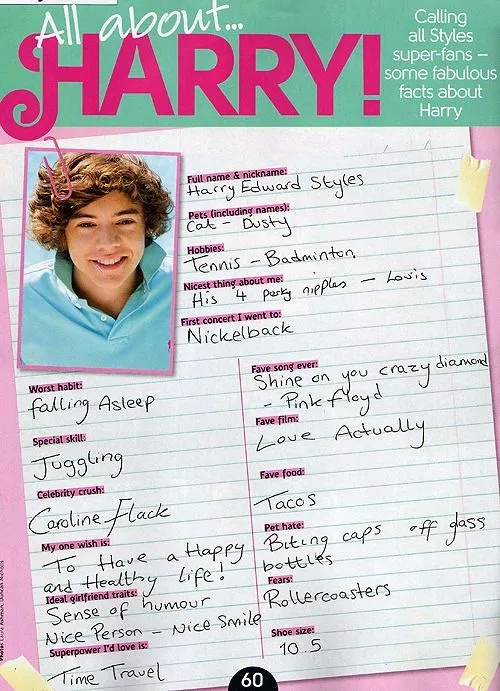 All about...
HARRY!
Calling
all Styles
super-fans –
some fabulous
facts about
Harry
Full name & nickname:
Harry Edward Styles
Pets (including names):
Cat - Dusty
Hobbies:
Tennis - Badminton
Nicest thing about me:
His 4 perky nipples - Louis
First concert I went to:
Nickelback
Worst habit:
falling Asleep
Special skill:
Juggling
Celebrity crush:
Caroline Flack
My one wish is:
To Have a Happy
and Healthy life!
Ideal girlfriend traits:
Sense of humour
Nice Person - Nice Smile
Superpower I'd love is:
Time Travel
Fave song ever:
Shine on you crazy diamond
- Pink floyd
Fave film:
Love Actually
Fave food:
Tacos
Pet hate:
Biting caps off glass
bottles
Fears:
Rollercoasters
Shoe size:
10.5
60